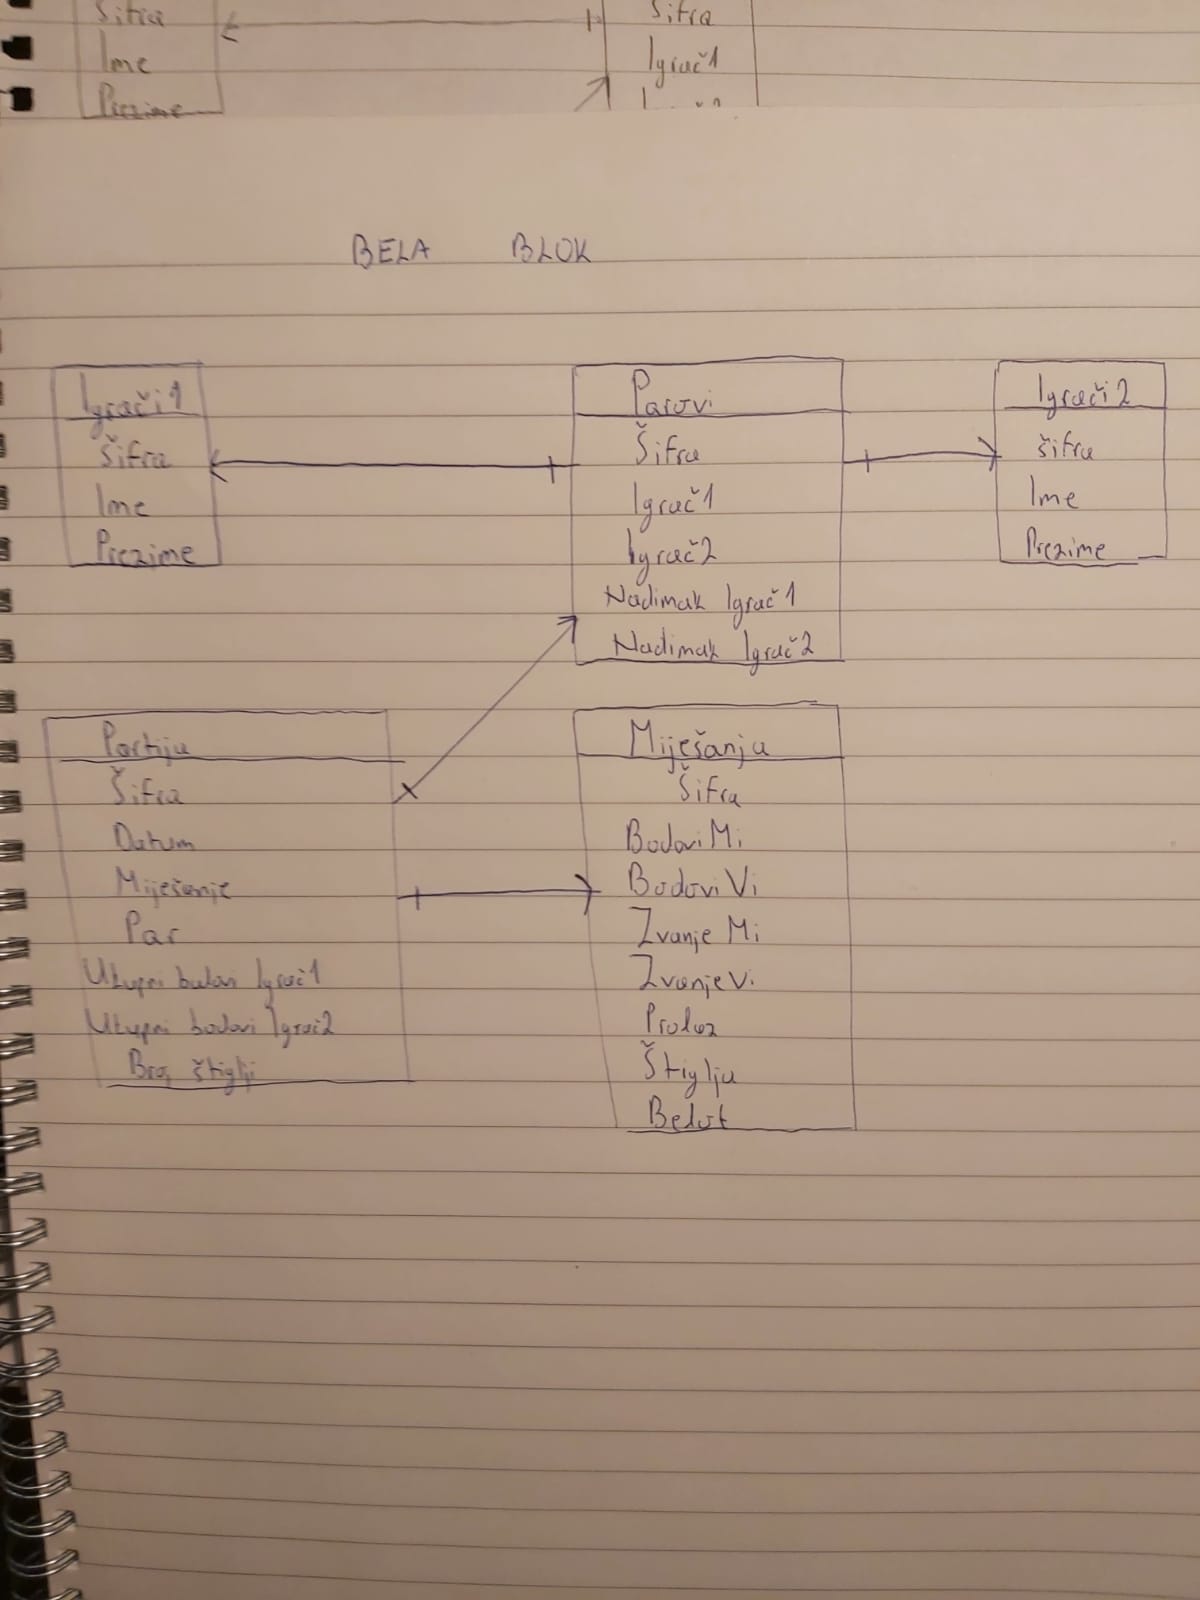 Šifra
Ime
Prezime
Šifra
Igrač1
BELA BLOK
Igrači1
Šifra
Ime
Prezime
Parovi
Šifra
Igrač1
Igrač2
Nadimak Igrač1
Nadimak Igrač2
Igrači2
šifra
Ime
Prezime
Partija
Šifra
Datum
Miješanje
Par
Ukupni bodovi Igrač1
Ukupni bodovi Igrač2
Broj štiglji
Miješanja
Šifra
Bodovi Mi
Bodovi Vi
Zvanje Mi
Zvanje Vi
Prolaz
Štiglja
Belot